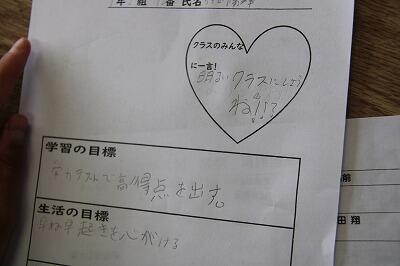 年 組 番 氏名
クラスのみんな
に一言!
明るいクラスにしよう
ね!!
学習の目標
学力テストで高得点を出す。
生活の目標
早ね早起きを心がける
前
田 翔